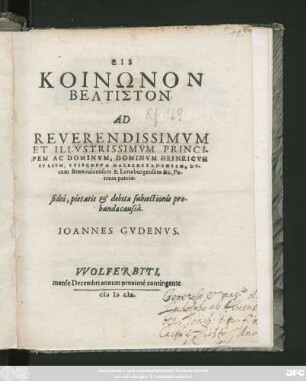 ΕΙΣ
ΚΟΙΝΩΝΟΝ
ΒΕΛΤΙΣΤΟΝ
Rf 129
AD
REVERENDISSIMVM
ET ILLVSTRISSIMVM PRINCI-
PEM AC DOMINVM, DOMINVM HEINRICVM
IVLIVM, EPISCOPVM HALBERSTADENSEM, DV-
cem Brunouicensem & Luneburgensem &c. Pa-
trem patriæ.
studii, pietatis & debitæ subiectionis pro-
bandæ causâ.
IOANNES GVDENVS.
VVOLFERBITI,
mense Decembri annum proximè contingente
cIɔ Iɔ